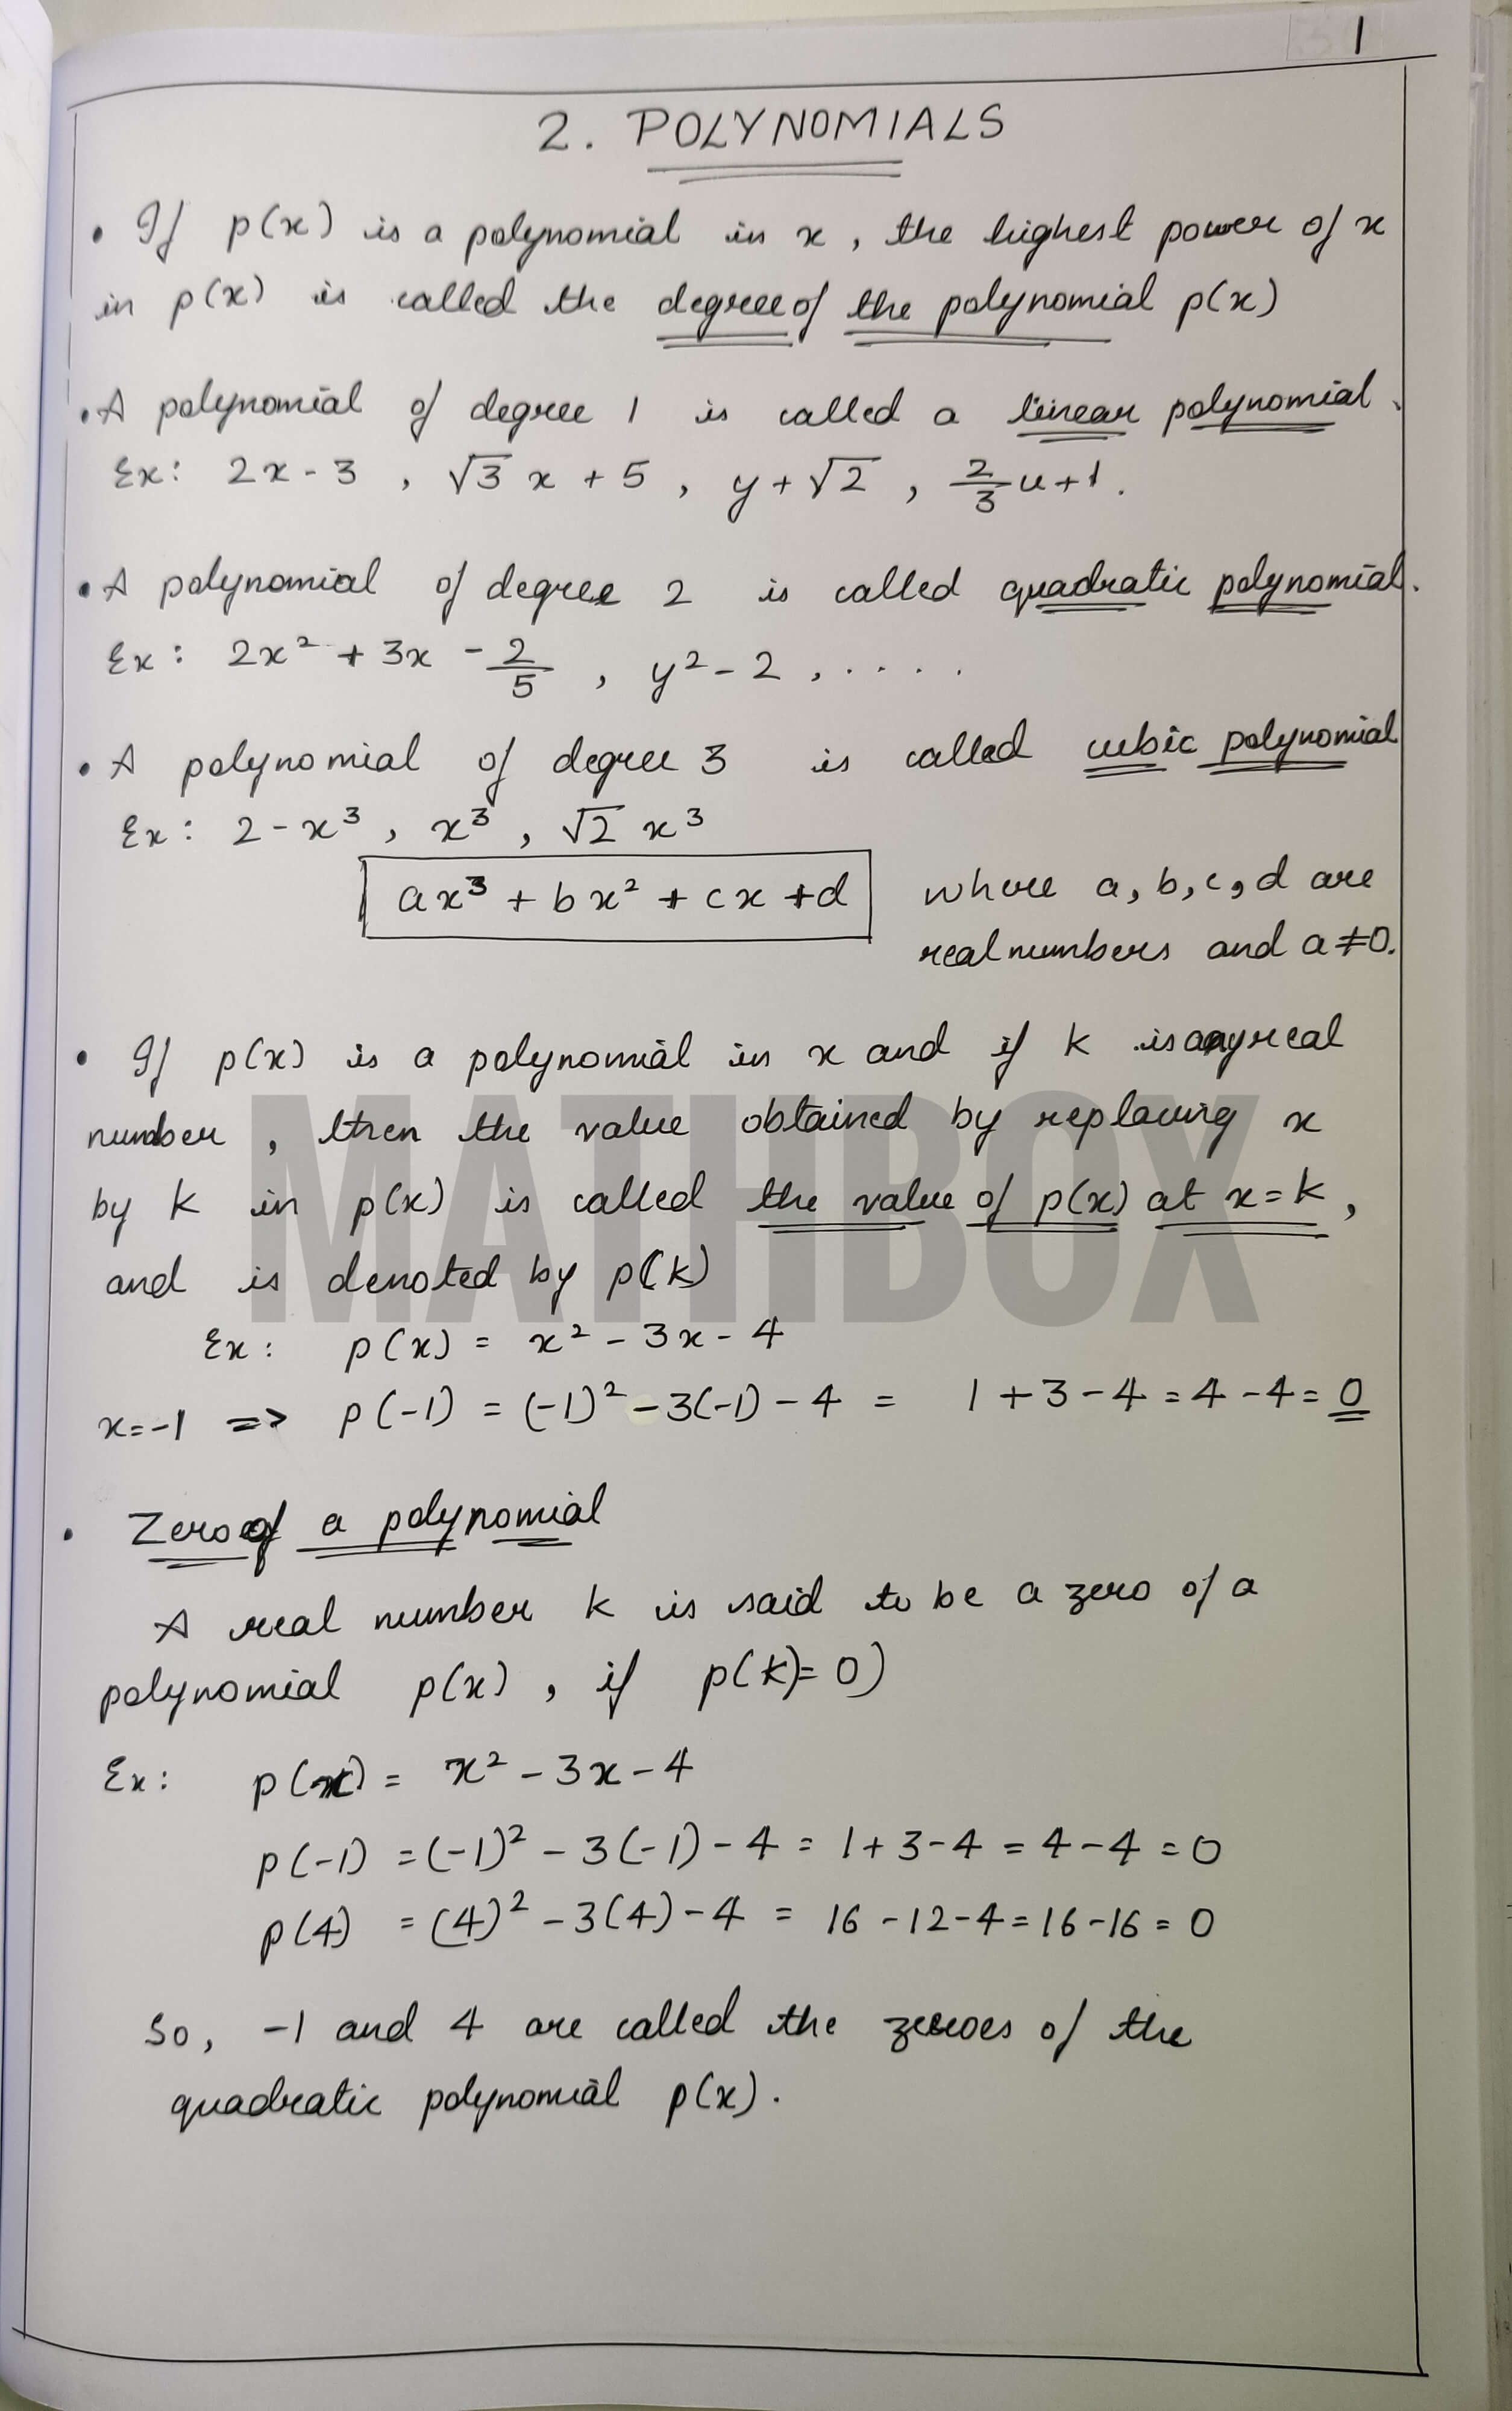 1
2. POLYNOMIALS
• If p(x) is a polynomial in x, the highest power of x
in p(x) is called the degree of the polynomial p(x)
• A polynomial of degree 1 is called a linear polynomial.
Ex: 2x - 3 , √3 x + 5 , y + √2 , 2/3 u + 1.
• A polynomial of degree 2 is called quadratic polynomial.
Ex: 2x² + 3x - 2/5 , y² - 2 , . . . . .
• A polynomial of degree 3 is called cubic polynomial
Ex: 2 - x³ , x³ , √2 x³
ax³ + bx² + cx + d where a, b, c, d are
real numbers and a ≠ 0.
• If p(x) is a polynomial in x and if k is any real
number , then the value obtained by replacing x
by k in p(x) is called the value of p(x) at x = k ,
and is denoted by p(k)
Ex: p(x) = x² - 3x - 4
x = -1 => p(-1) = (-1)² - 3(-1) - 4 = 1 + 3 - 4 = 4 - 4 = 0
• Zero of a polynomial
A real number k is said to be a zero of a
polynomial p(x) , if p(k) = 0)
Ex: p(x) = x² - 3x - 4
p(-1) = (-1)² - 3(-1) - 4 = 1 + 3 - 4 = 4 - 4 = 0
p(4) = (4)² - 3(4) - 4 = 16 - 12 - 4 = 16 - 16 = 0
So, -1 and 4 are called the zeroes of the
quadratic polynomial p(x).
MATHBOX